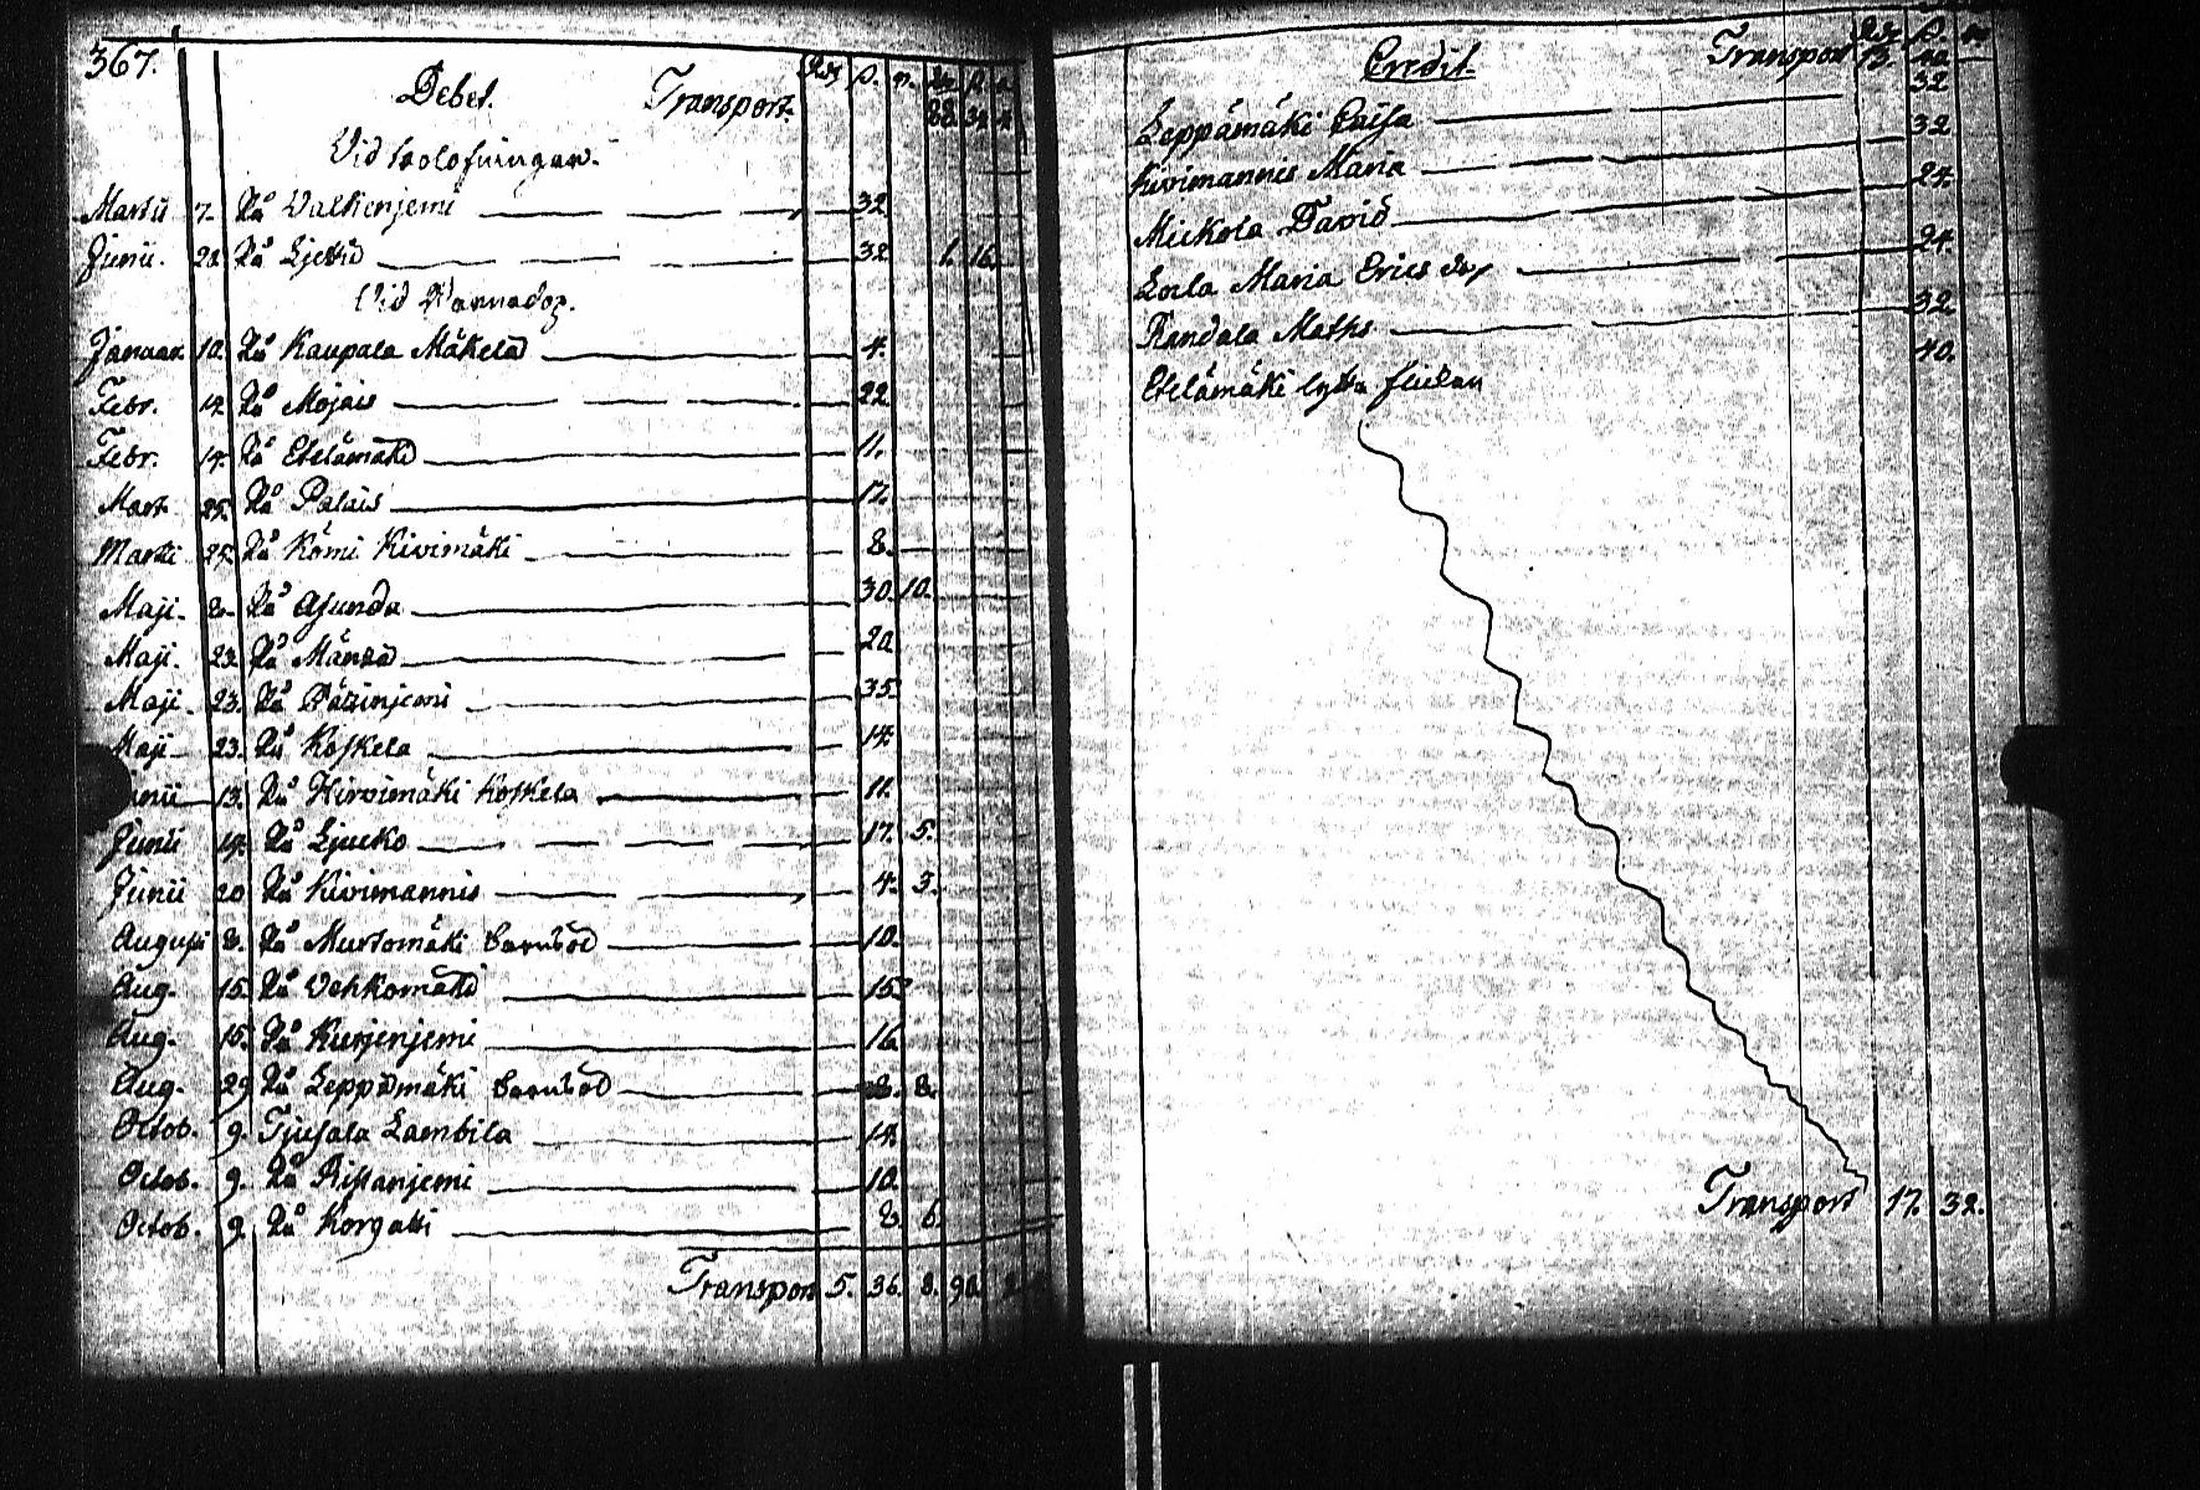 367.
Debet. Transport. Rdr ß. r. Rdr ß. r.
28. 32
Vid trolofningar.
Martii 7. På Walkenjemi 32
Junii. 28. På Ljettiö 32 1. 16.
Vid Barnadop.
Januar. 10. På Kaupala Mäkelä 4.
Febr. 14. På Mojais 22
Febr. 14. På Etelämäki 11.
Mart. 25. På Palais 17.
Martii 25. På Kömi Kivimäki 8.
Maji. 8. På Asunda 30. 10.
Maji. 23. På Mänsä 20
Maji. 23. På Pätinjemi 35.
Maji 23. På Koskela 14.
Junii 13. På Hirvimäki Koskela 11.
Junii 19. På Ljucko 17. 5.
Junii 20 På Kivimannis 4. 3.
Augusti 8. På Murtomäki Barndöd 10.
Aug. 15. På Vehkomäki 15.
Aug. 15. På Kurjenjemi 16.
Aug. 29 På Leppämäki Barndöd 8. 8.
Octob. 9. Tjusala Lambila 14.
Octob. 9. På Ristanjemi 10.
Octob. 9. På Korgatti 8. 6.
Transport 5. 36. 8. 90.
Credit. Transport Rdr ß. r.
13. 40
Leppämäki Caisa 32
Kivimannis Maria 32
Mickola David 24.
Lorla Maria Erics dr 24.
Randala Maths 32.
Etelämäki lytta flickan 40.
Transport 17. 32.